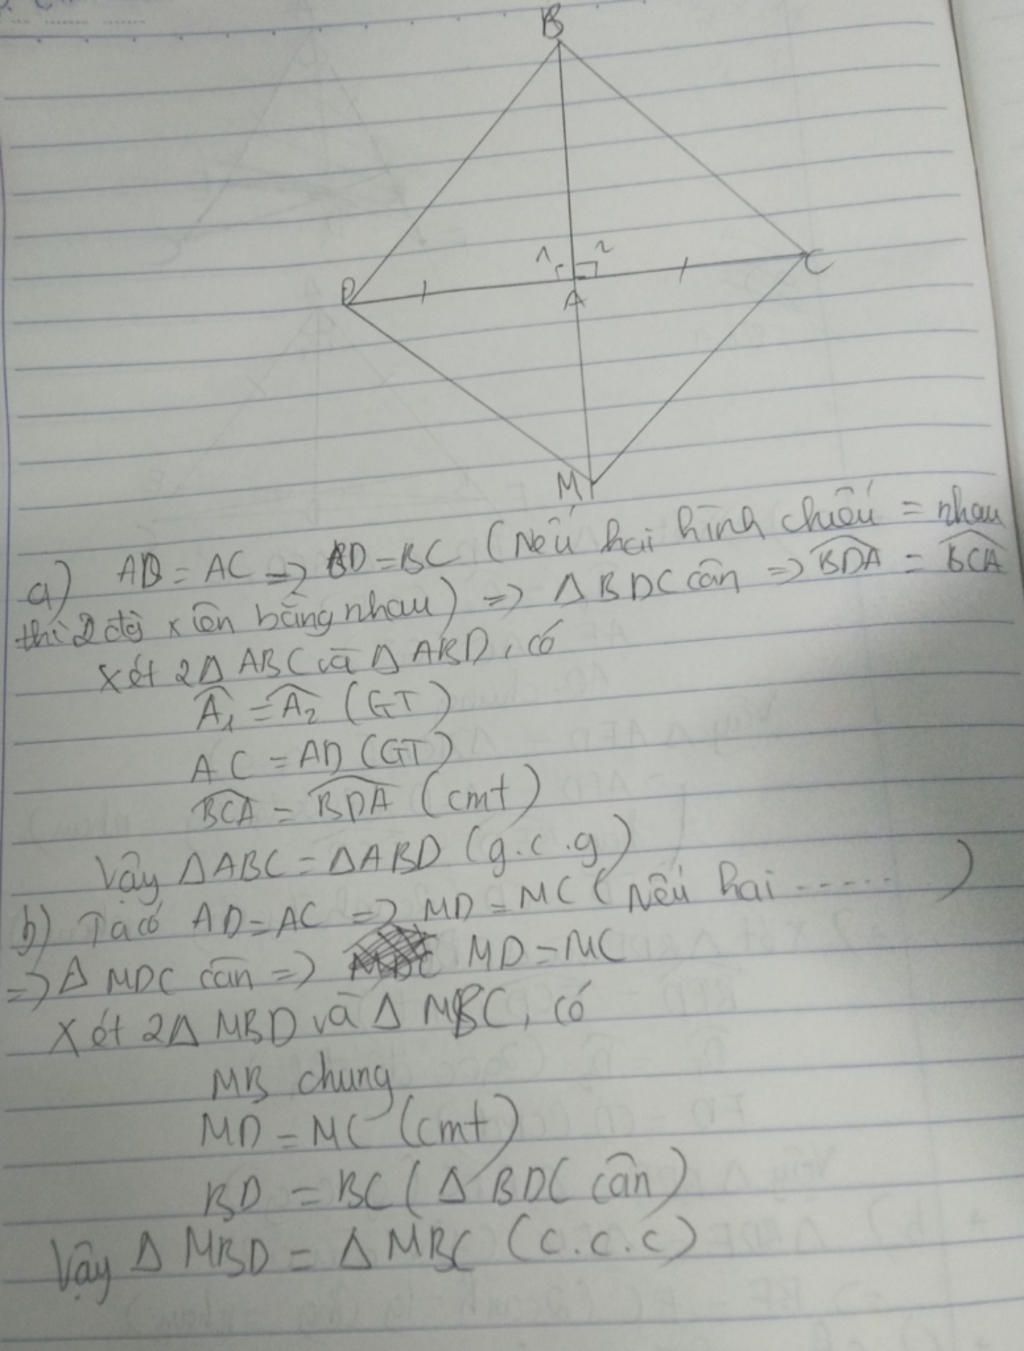 B
1 2
D
A
C
M
a) AD = AC => BD = BC (Nếu hai hình chiếu = nhau
thì 2 đg xiên bằng nhau) => Δ BDC cân => BDA = BCA
Xét 2Δ ABC và Δ ABD, có
A1 = A2 (GT)
AC = AD (GT)
BCA = BDA (cmt)
Vậy ΔABC = ΔABD (g.c.g)
b) Ta có AD = AC => MD = MC (Nếu hai ......)
=> Δ MDC cân => MD = MC
Xét 2Δ MBD và Δ MBC, có
MB chung
MD = MC (cmt)
BD = BC (Δ BDC cân)
Vậy Δ MBD = Δ MBC (c.c.c)